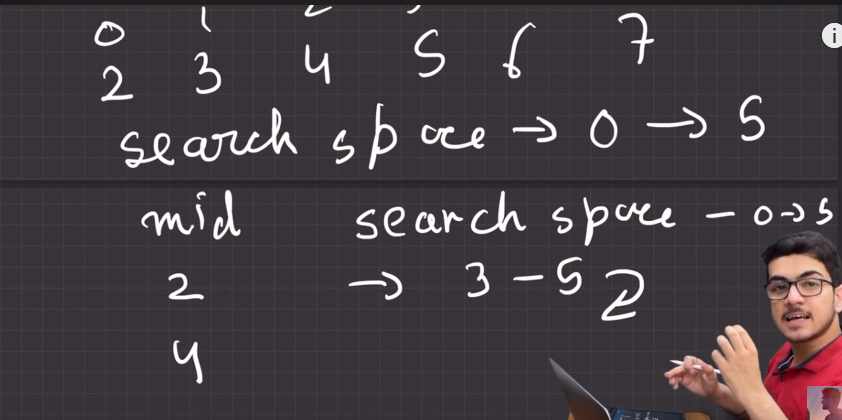 0 1 2 3
2 3 4 5 6 7
search space → 0 → 5
mid search space - 0→5
2 → 3 - 5
4
i